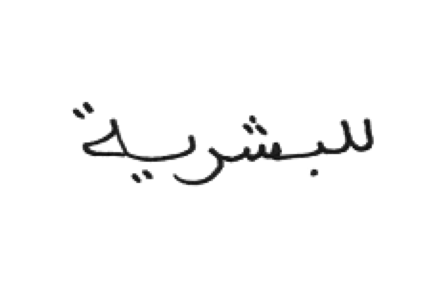 للبشرية